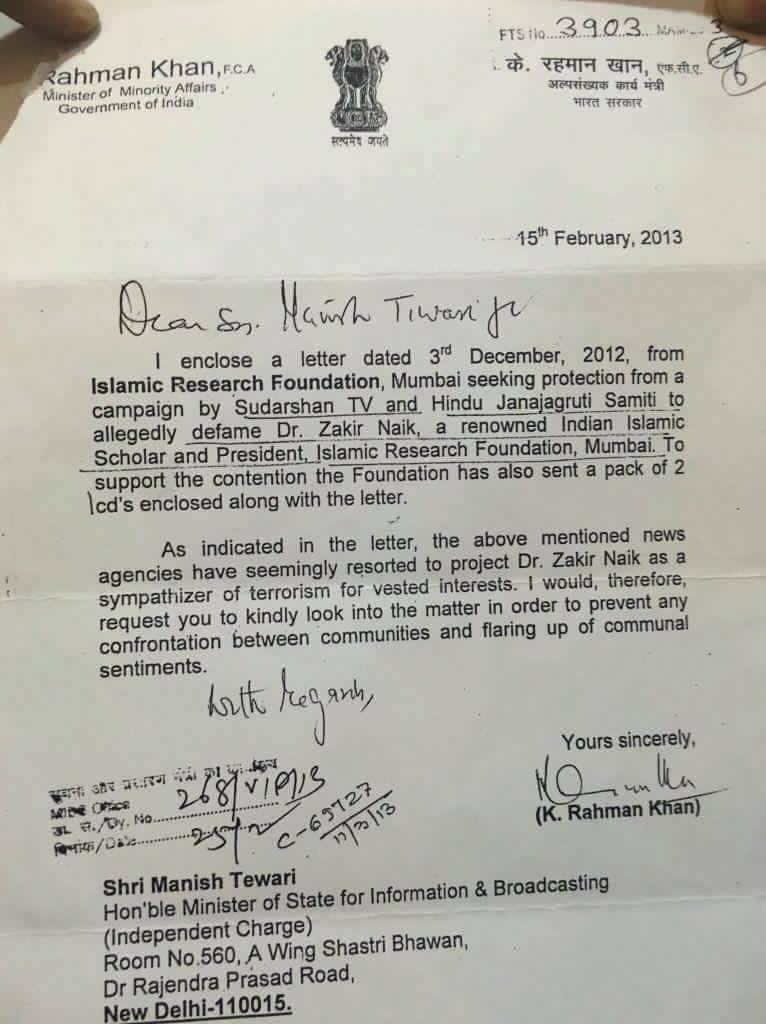 Rahman Khan, F.C.A
Minister of Minority Affairs
Government of India
सत्यमेव जयते
FTS No. 3903
के. रहमान खान, एफ.सी.ए.
अल्पसंख्यक कार्य मंत्री
भारत सरकार
15th February, 2013
Dear Manish Tiwari
I enclose a letter dated 3rd December, 2012, from
Islamic Research Foundation, Mumbai seeking protection from a
campaign by Sudarshan TV and Hindu Janajagruti Samiti to
allegedly defame Dr. Zakir Naik, a renowned Indian Islamic
Scholar and President, Islamic Research Foundation, Mumbai. To
support the contention the Foundation has also sent a pack of 2
cd's enclosed along with the letter.
As indicated in the letter, the above mentioned news
agencies have seemingly resorted to project Dr. Zakir Naik as a
sympathizer of terrorism for vested interests. I would, therefore,
request you to kindly look into the matter in order to prevent any
confrontation between communities and flaring up of communal
sentiments.
With Regards,
Yours sincerely,
(K. Rahman Khan)
सूचना और प्रसारण मंत्री का कार्यालय
Office
डा. सं./Dy. No.
दिनांक/Date
C-69727
Shri Manish Tewari
Hon'ble Minister of State for Information & Broadcasting
(Independent Charge)
Room No.560, A Wing Shastri Bhawan,
Dr Rajendra Prasad Road,
New Delhi-110015.